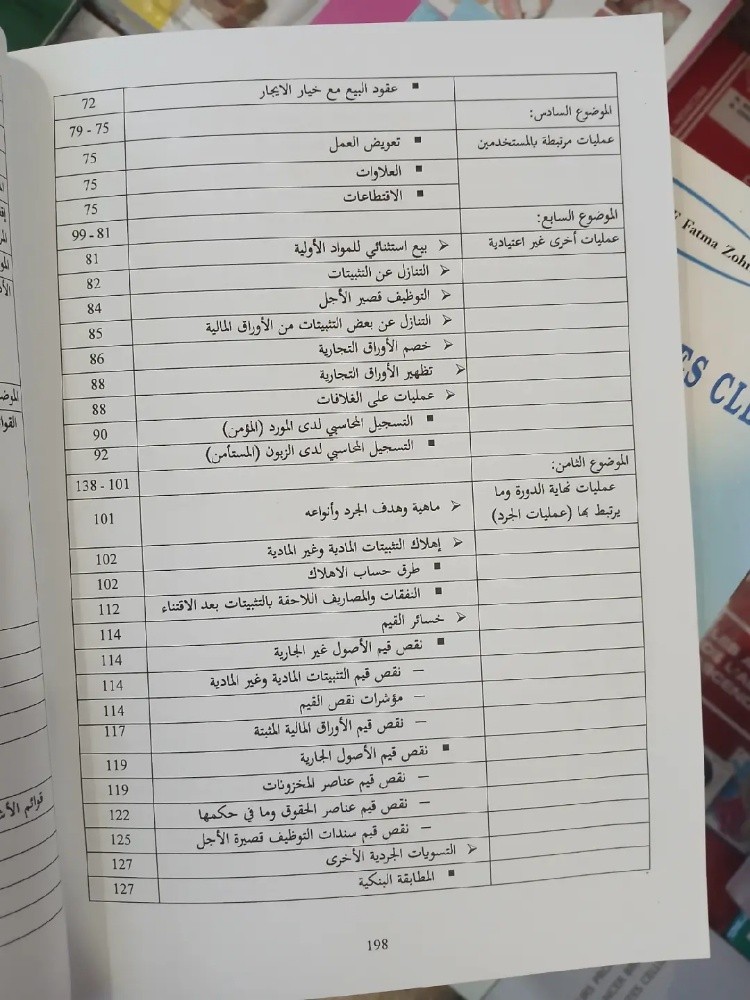 عقود البيع مع خيار الايجار 72
الموضوع السادس: 75 - 79
عمليات مرتبطة بالمستخدمين
▪ تعويض العمل 75
▪ العلاوات 75
▪ الاقتطاعات 75
الموضوع السابع: 81 - 99
عمليات أخرى غير اعتيادية
➢ بيع استثنائي للمواد الأولية 81
➢ التنازل عن التثبيتات 82
➢ التوظيف قصير الأجل 84
➢ التنازل عن بعض التثبيتات من الأوراق المالية 85
➢ خصم الأوراق التجارية 86
➢ تظهير الأوراق التجارية 88
➢ عمليات على الغلافات 88
▪ التسجيل المحاسبي لدى المورد (المؤمن) 90
▪ التسجيل المحاسبي لدى الزبون (المستأمن) 92
الموضوع الثامن: 101 - 138
عمليات نهاية الدورة وما
يرتبط بها (عمليات الجرد)
➢ ماهية وهدف الجرد وأنواعه 101
➢ إهلاك التثبيتات المادية وغير المادية 102
▪ طرق حساب الاهلاك 102
▪ النفقات والمصاريف اللاحقة بالتثبيتات بعد الاقتناء 112
➢ خسائر القيم 114
▪ نقص قيم الأصول غير الجارية 114
– نقص قيم التثبيتات المادية وغير المادية 114
– مؤشرات نقص القيم 114
– نقص قيم الأوراق المالية المثبتة 117
▪ نقص قيم الأصول الجارية 119
– نقص قيم عناصر المخزونات 119
– نقص قيم عناصر الحقوق وما في حكمها 122
– نقص قيم سندات التوظيف قصيرة الأجل 125
➢ التسويات الجردية الأخرى 127
▪ المطابقة البنكية 127
198
Fatma Zohr
ES CLE